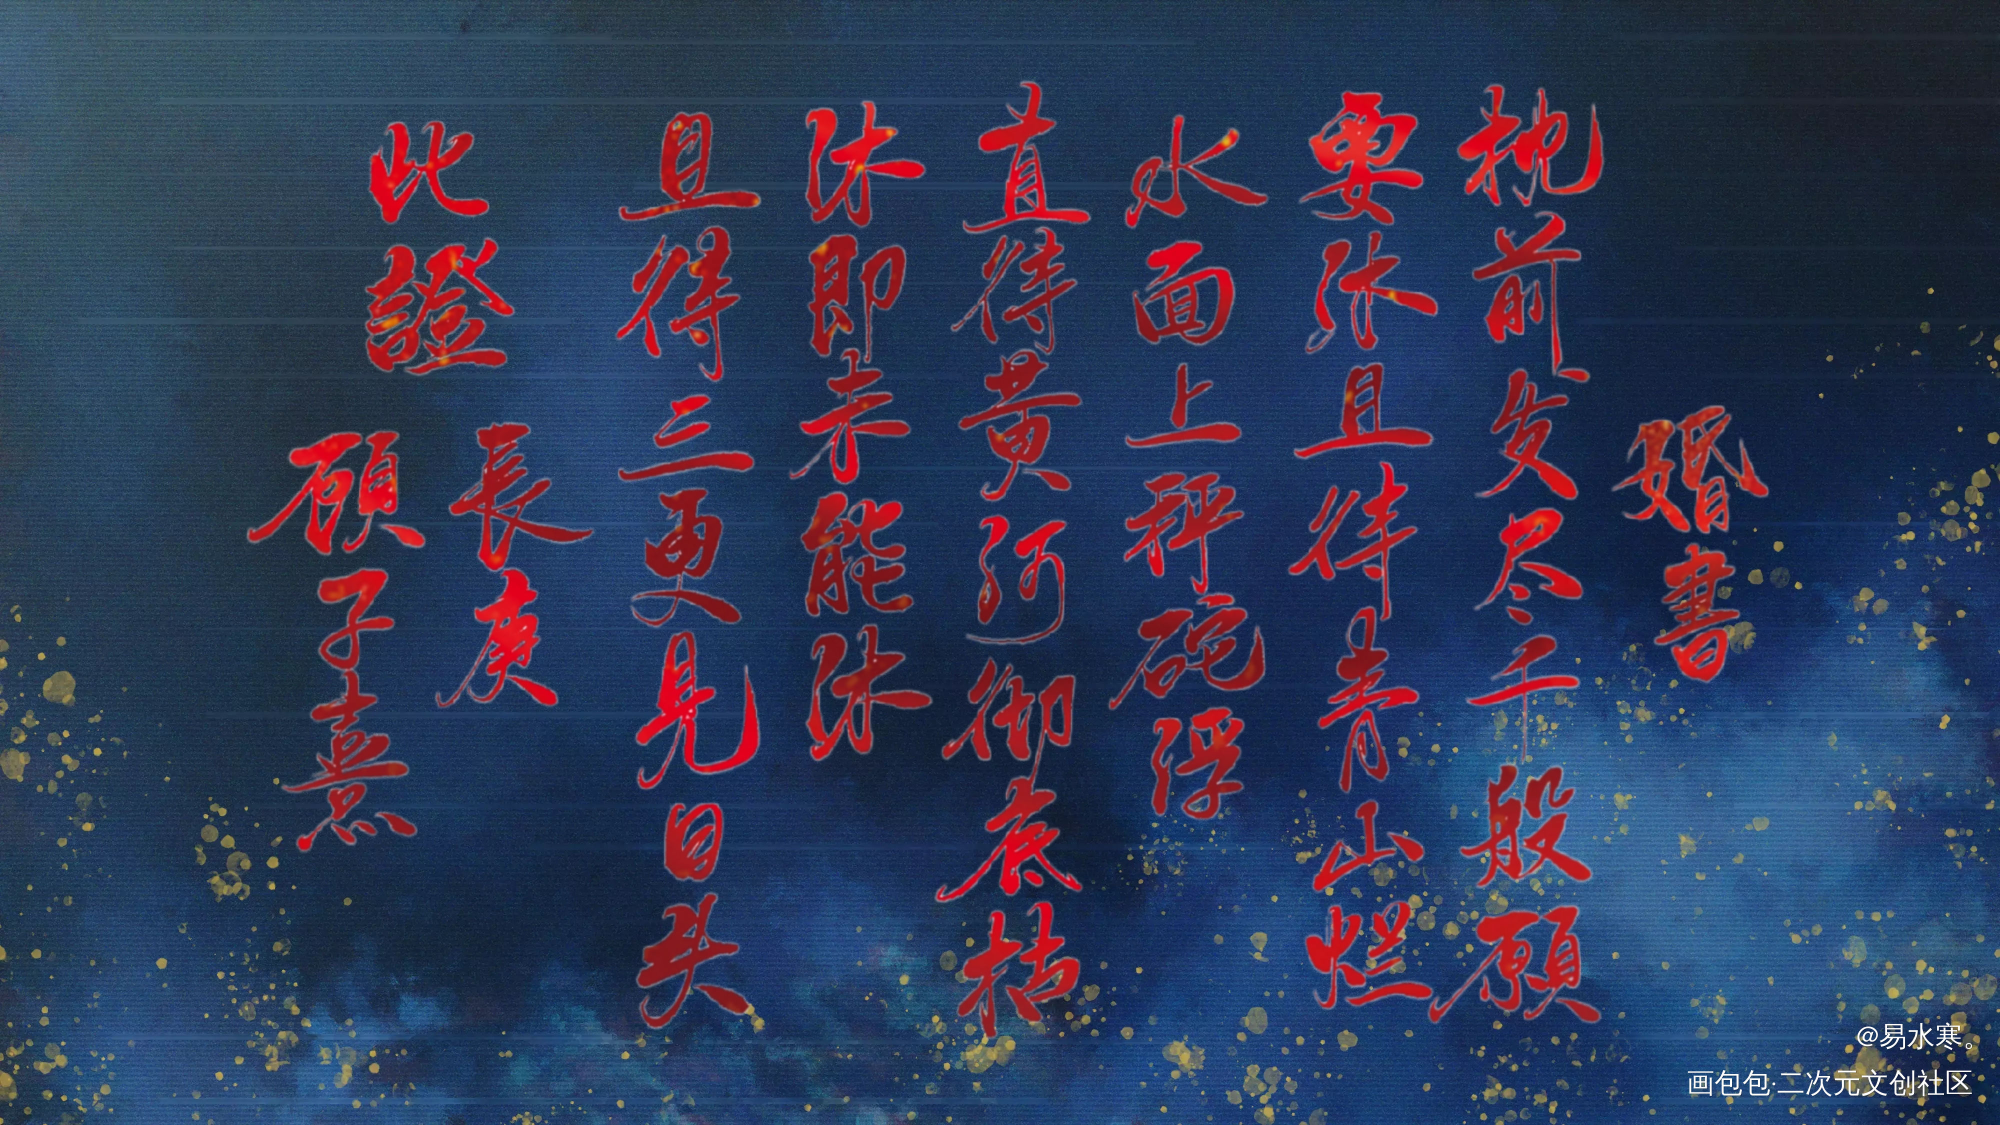 婚書
枕前发尽千般願
要休且待青山烂
水面上秤砣浮
直待黄河彻底枯
休即未能休
且待三更見日头
此證
長庚
顧子熹
@易水寒。
画包包·二次元文创社区